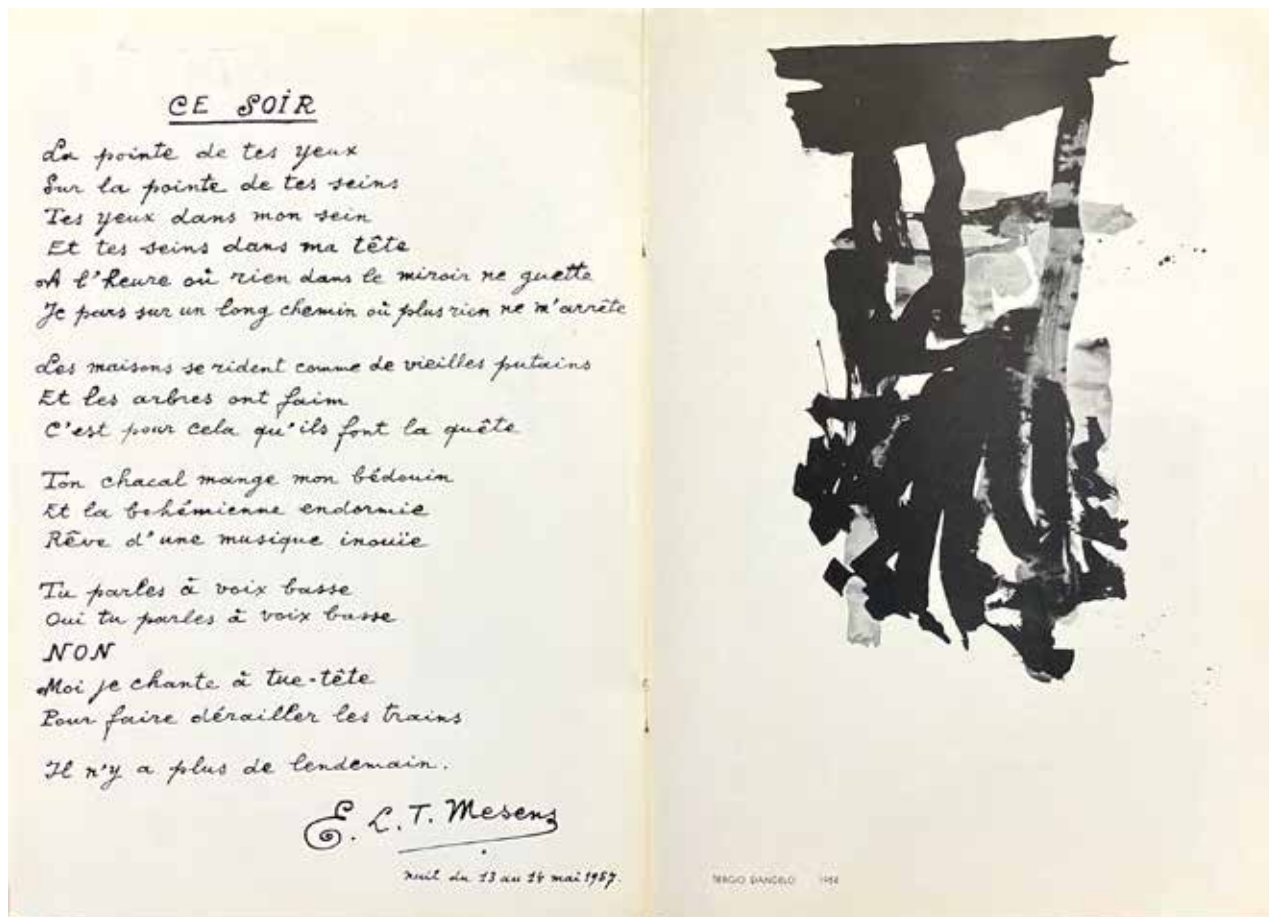 CE SOIR
La pointe de tes yeux
Sur la pointe de tes seins
Tes yeux dans mon sein
Et tes seins dans ma tête
A l'heure où rien dans le miroir ne guette
Je pars sur un long chemin où plus rien ne m'arrête
Les maisons se rident comme de vieilles putains
Et les arbres ont faim
C'est pour cela qu'ils font la quête
Ton chacal mange mon bédouin
Et la bohémienne endormie
Rêve d'une musique inouïe
Tu parles à voix basse
Oui tu parles à voix basse
NON
Moi je chante à tue-tête
Pour faire dérailler les trains
Il n'y a plus de lendemain.
E. L. T. Mesens
nuit du 13 au 14 mai 1957.
SERGIO DANGELO